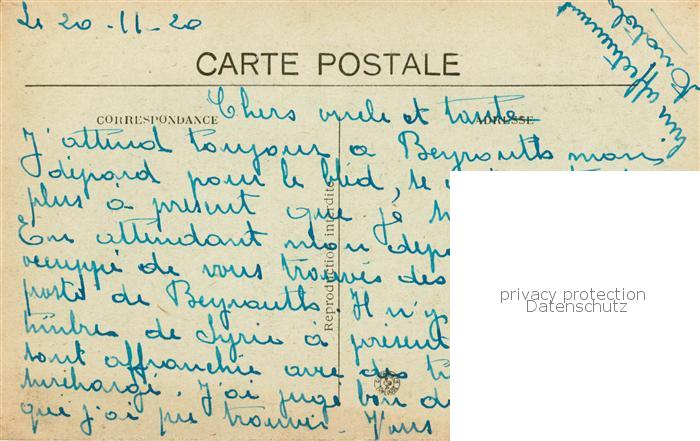 Le 20-11-20
CARTE POSTALE
CORRESPONDANCE
ADRESSE
Chers oncle et tante
J'attend toujour a Beyrouth mon
dépard pour le bled, je
plus à present que je
En attendant mon depa
occuppé de vous trouvés des
poste de Beyrouth. Il n'y
timbres de Syrie à présent
sont affranchie avec des ti
surchargé. J'ai jugé bon d
que j'ai pu trouver. Vous
Reproduction interdite
privacy protection
Datenschutz